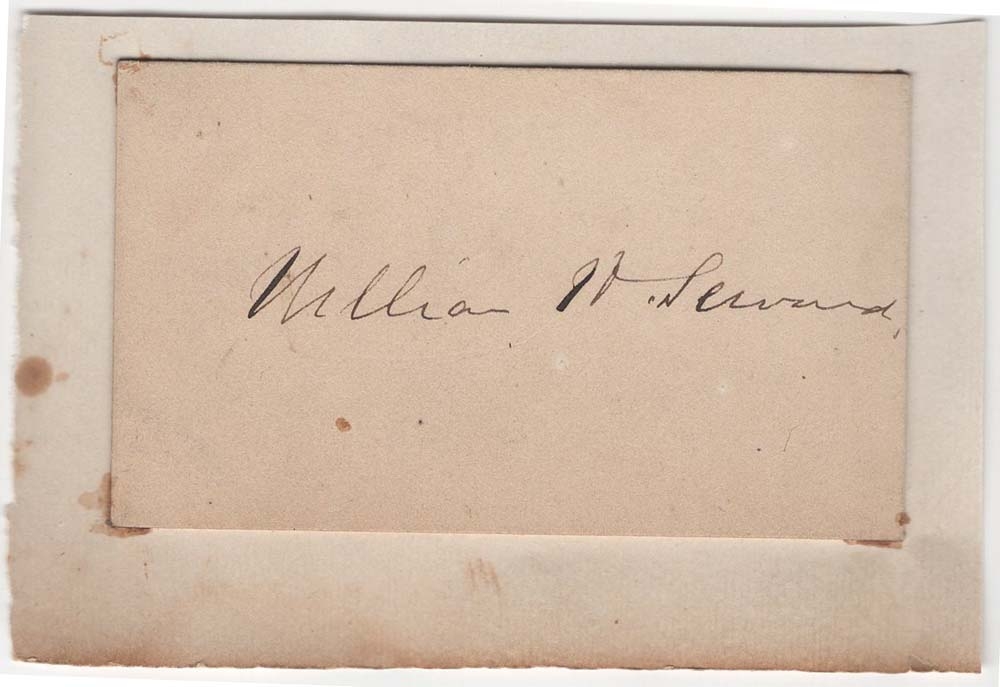 William H. Seward.